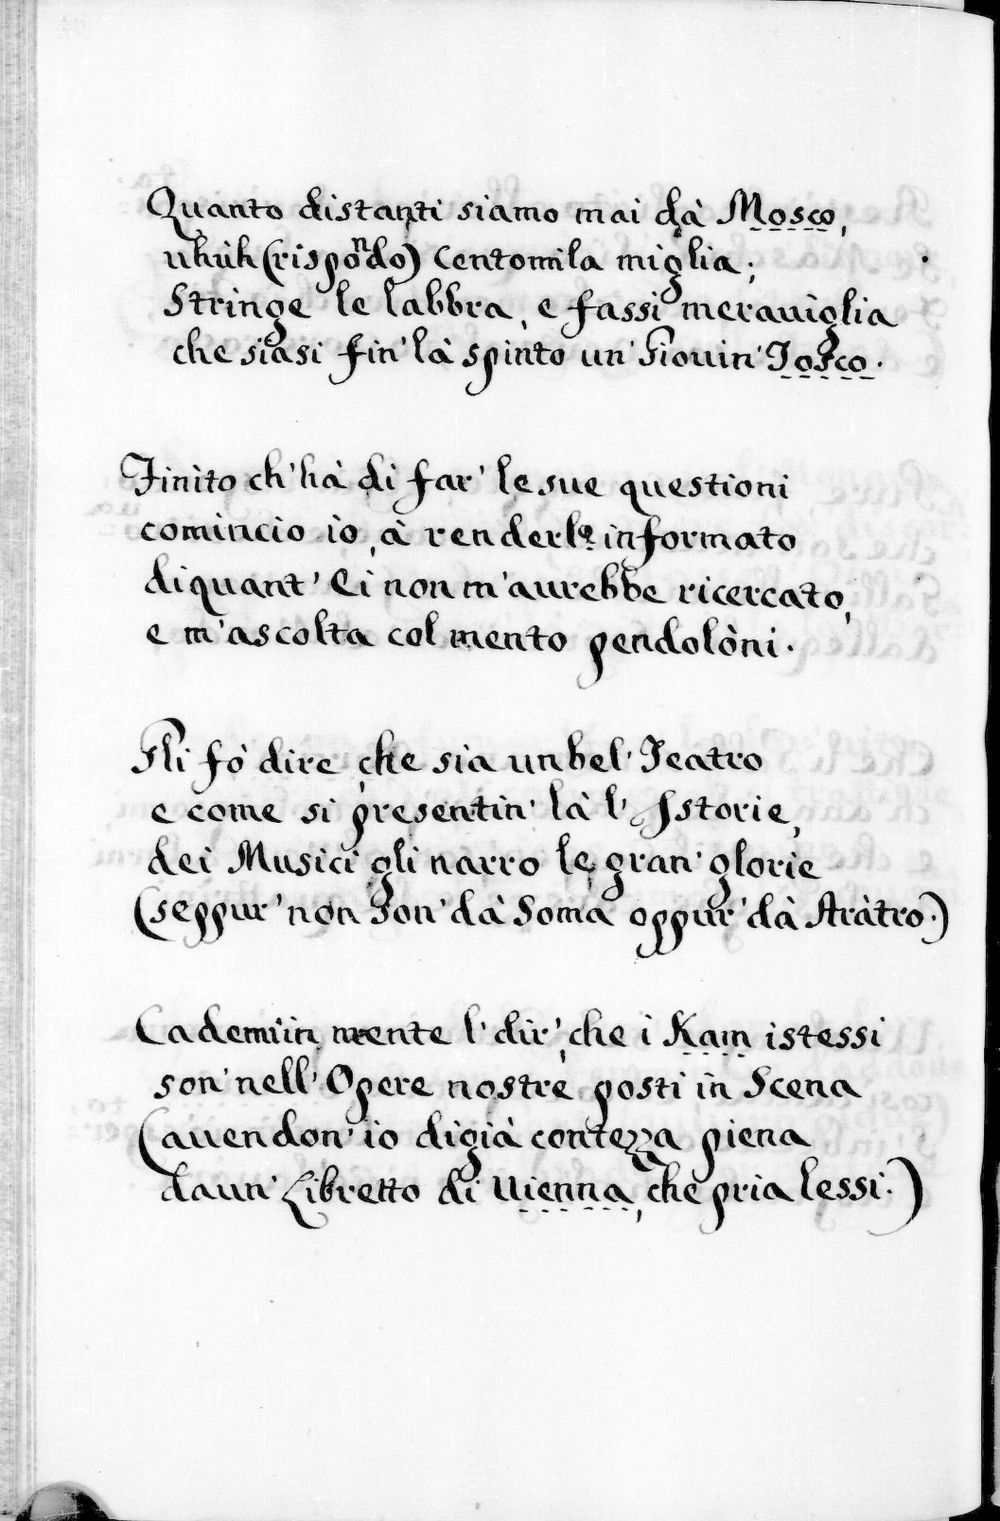 Quanto distanti siamo mai dà Mosco,
uhùh (rispondo) Centomila miglia;
Stringe le labbra, e fassi merauiglia
che siasi fin' là spinto un' Giouin' Tosco.
Finito ch' hà di far' le sue questioni
comincio io, à renderlo informato
di quant' Ei non m'aurebbe ricercato,
e m'ascolta col mento pendolòni.
Gli fò dire che sia un bel' Teatro
e come si presentin' là l' Istorie,
dei Musici gli narro le gran' glorie
(seppur' non son' dà Soma oppur' dà Aràtro.)
Cademi in mente l' dir', che i Kam istessi
son' nell' Opere nostre posti in Scena
(auendon' io digià contezza piena
da un' Libretto di Uienna, che pria lessi.)